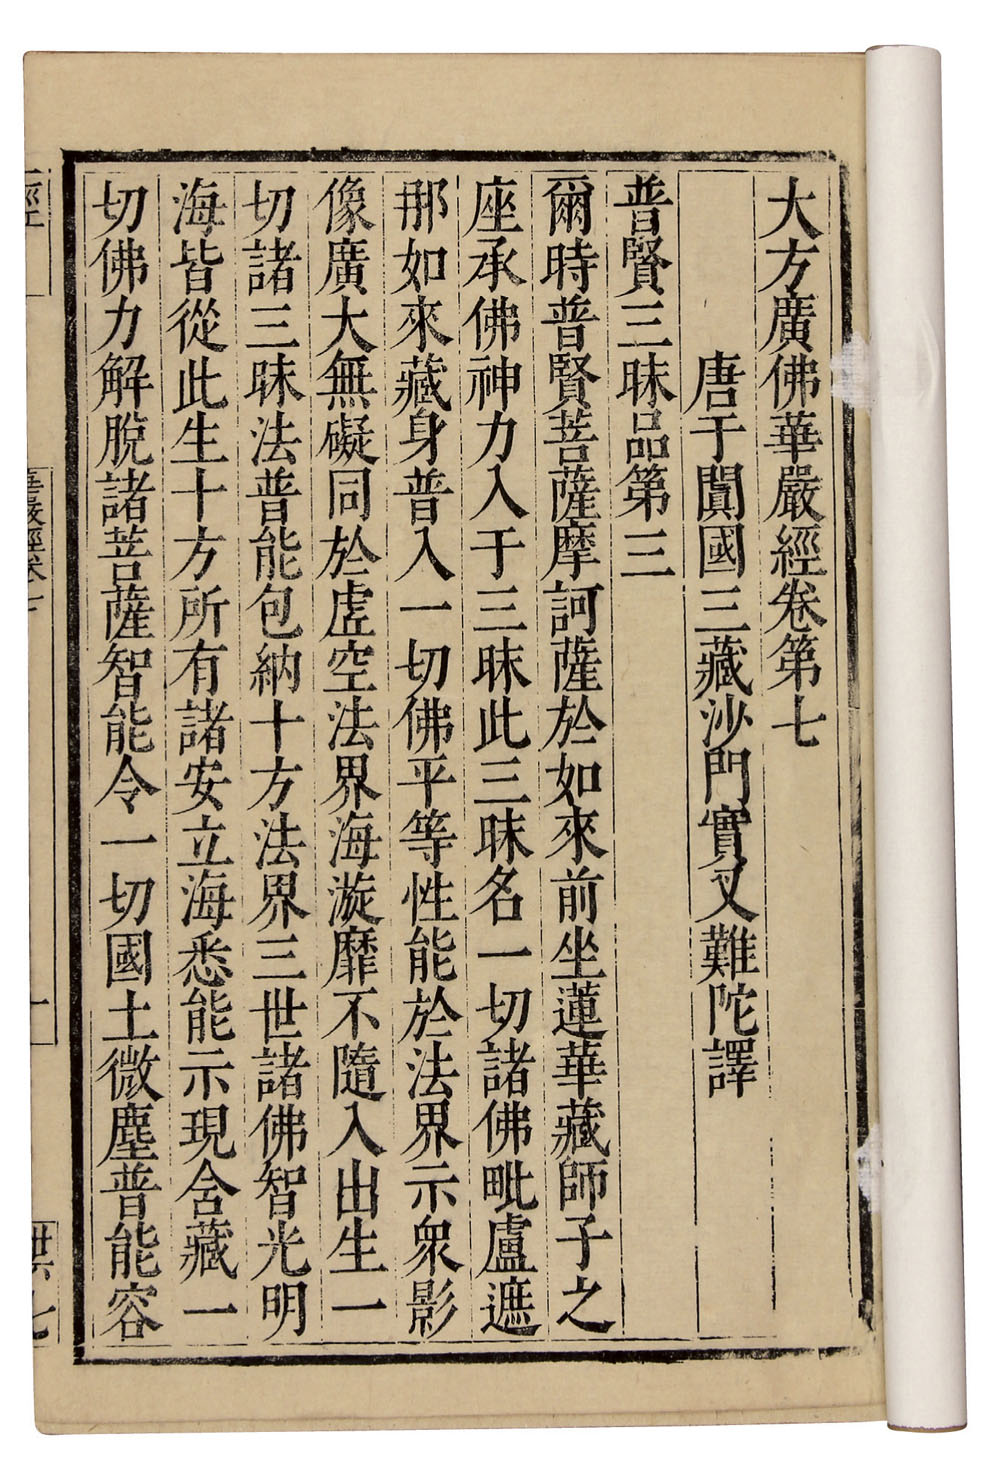 大方廣佛華嚴經卷第七
唐于闐國三藏沙門實叉難陀譯
普賢三昧品第三
爾時普賢菩薩摩訶薩於如來前坐蓮華藏師子之
座承佛神力入于三昧此三昧名一切諸佛毗盧遮
那如來藏身普入一切佛平等性能於法界示衆影
像廣大無礙同於虛空法界海漩靡不隨入出生一
切諸三昧法普能包納十方法界三世諸佛智光明
海皆從此生十方所有諸安立海悉能示現含藏一
切佛力解脫諸菩薩智能令一切國土微塵普能容